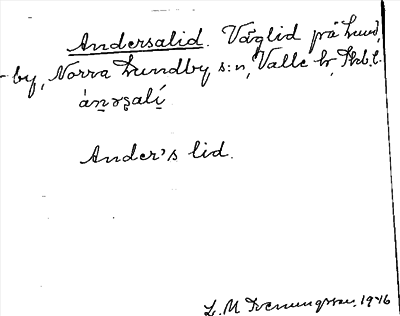 Andersalid. Väglid på Lund,
by, Norra Lundby s:n, Valle h, Skb. l.
Ander's lid.
L. M. Svenungsson. 1946